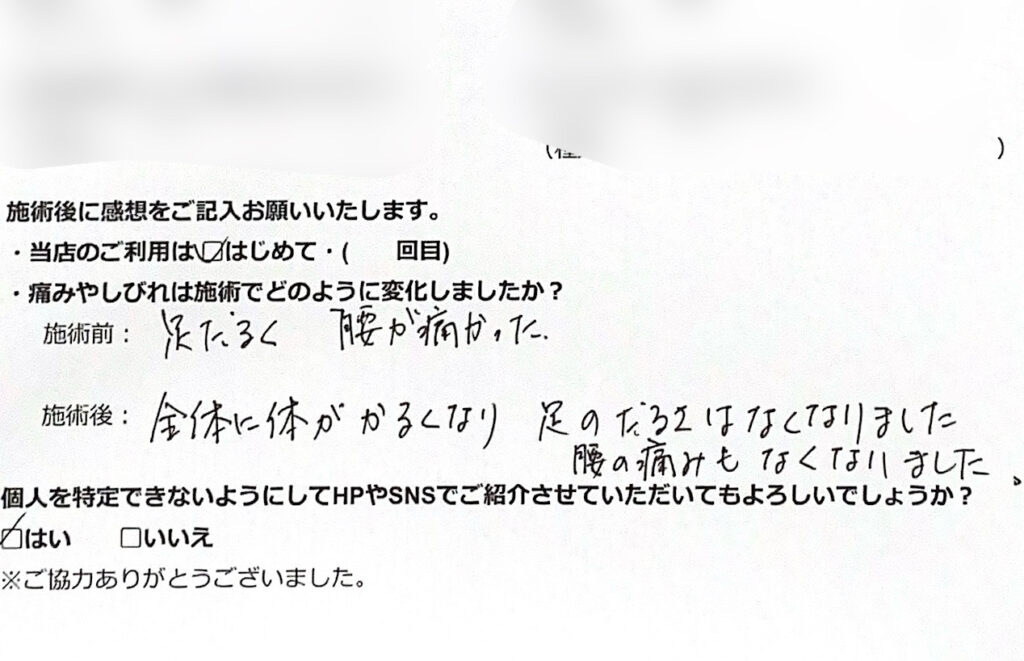 施術後に感想をご記入お願いいたします。
・当店のご利用は☑はじめて・(　　回目)
・痛みやしびれは施術でどのように変化しましたか？
施術前： 足だるく　腰が痛かった.
施術後： 全体に体がかるくなり　足のだるさはなくなりました
腰の痛みもなくなりました。
個人を特定できないようにしてHPやSNSでご紹介させていただいてもよろしいでしょうか？
☑はい　　□いいえ
※ご協力ありがとうございました。